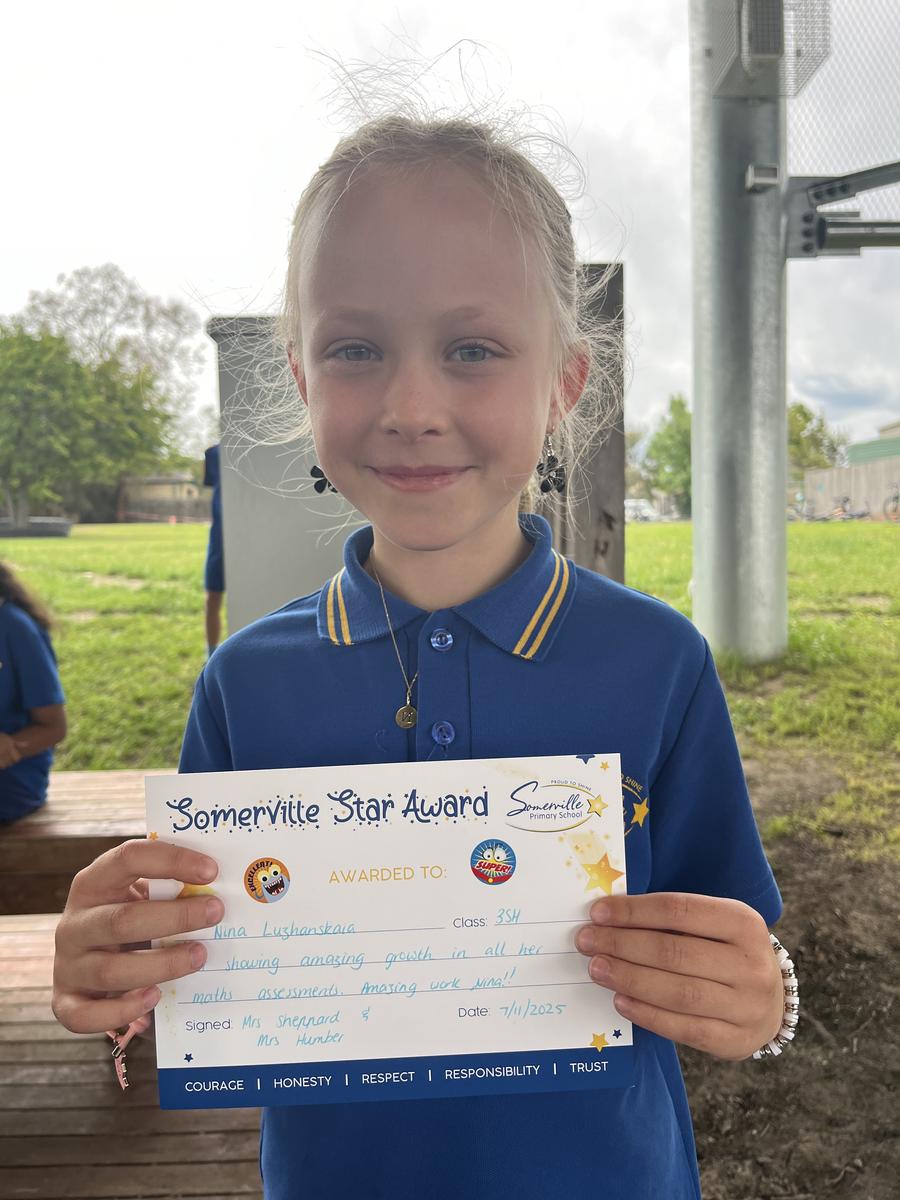 Somerville Star Award
PROUD TO SHINE
Somerville
Primary School
EXCELLENT!
AWARDED TO:
SUPER!
Nina Luzhanskaia Class: 3SH
showing amazing growth in all her
maths assessments. Amazing work Nina!!
Signed: Mrs Sheppard &
Mrs Humber
Date: 7/11/2025
COURAGE | HONESTY | RESPECT | RESPONSIBILITY | TRUST
TO SHINE